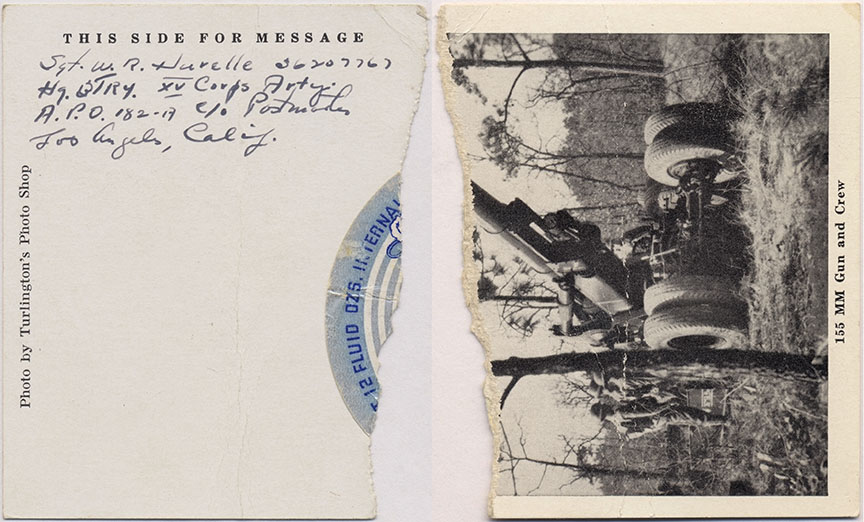 THIS SIDE FOR MESSAGE
Sgt. W. R. Huvelle 36207767
Hq. BTRY. XV Corps Arty.
A.P.O. 182-A c/o Postmaster
Los Angeles, Calif.
Photo by Turlington's Photo Shop
12 FLUID OZS. INTERNA
155 MM Gun and Crew